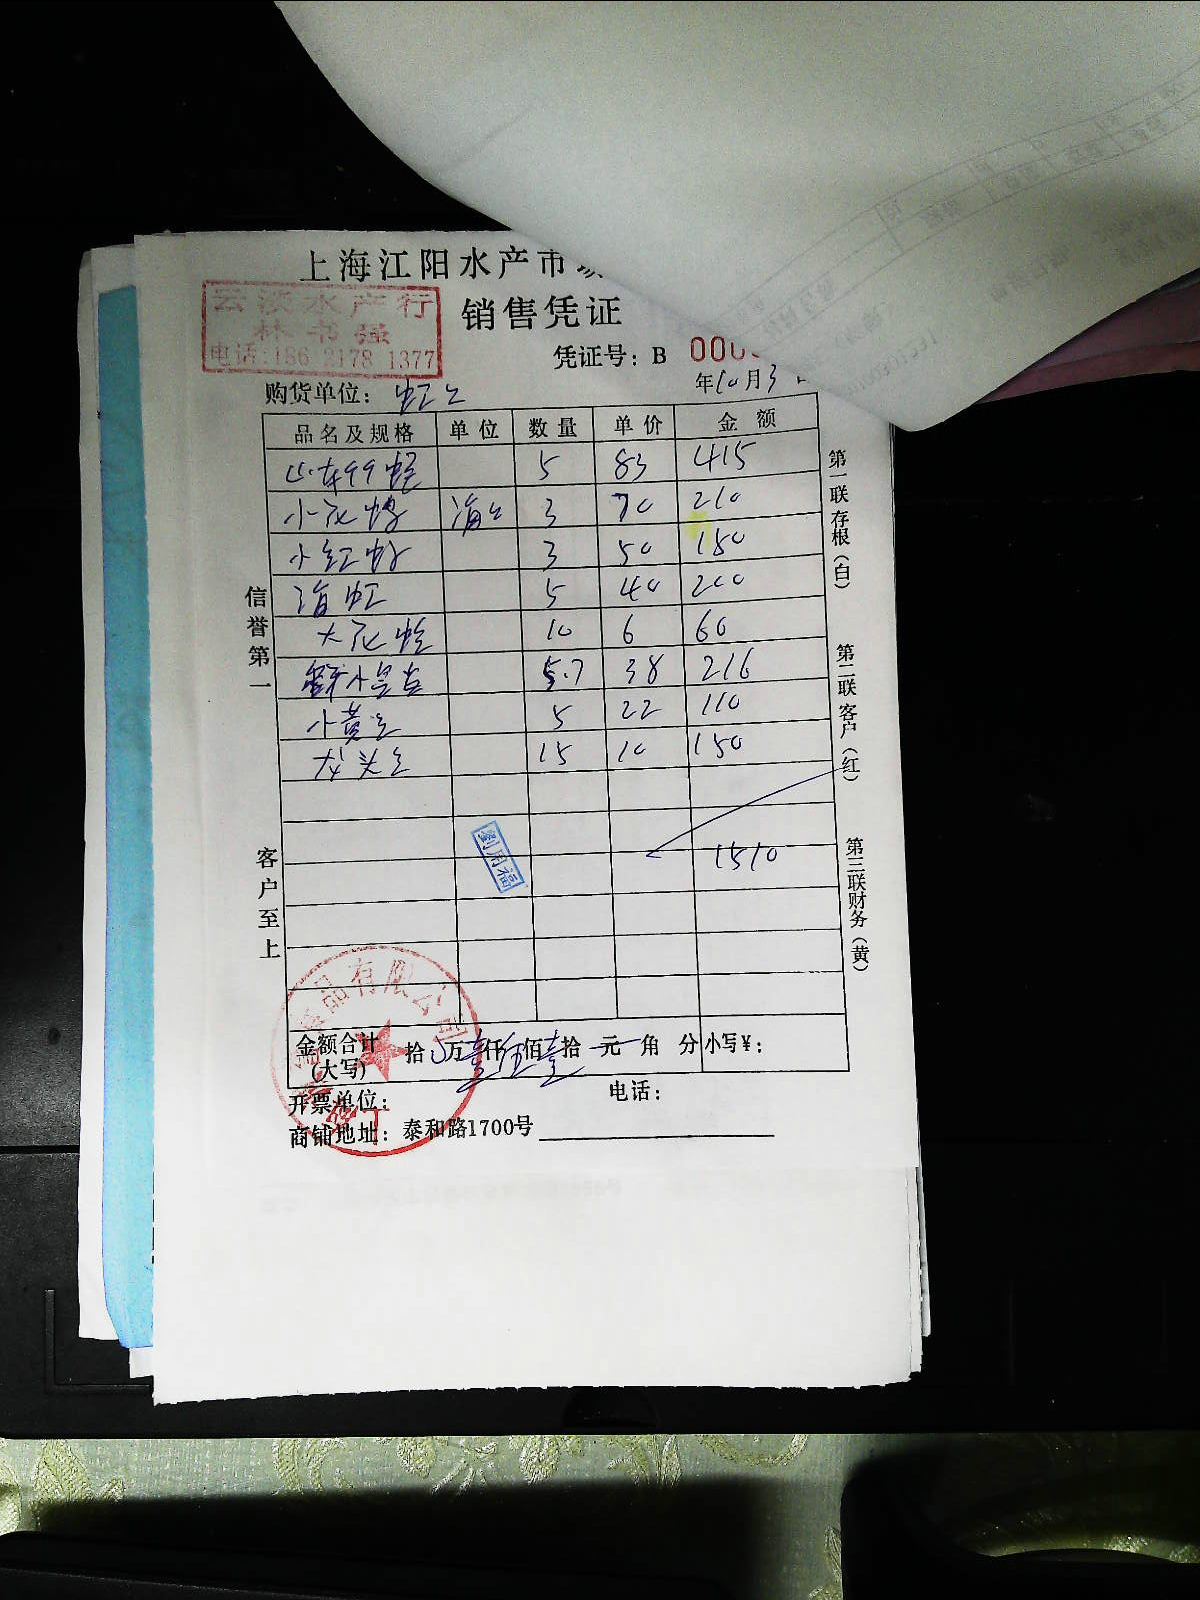 上海江阳水产市
销售凭证
云淡水产行
林书强
电话:186 2178 1377
凭证号：B 000
年10月3
购货单位：
品名及规格 单位 数量 单价 金额
5 83 415
小花蛤 3 70 210
小红 3 50 150
海虹 5 40 200
大花蛤 10 6 60
5.7 38 216
小黄鱼 5 22 110
龙头鱼 15 10 150
1510
劉用福
信誉第一
客户至上
第一联存根（白）
第二联客户（红）
第三联财务（黄）
品有限公司
金额合计（大写） 拾 万壹仟伍佰壹拾 元 角 分 小写¥：
开票单位：
电话：
商铺地址：泰和路1700号